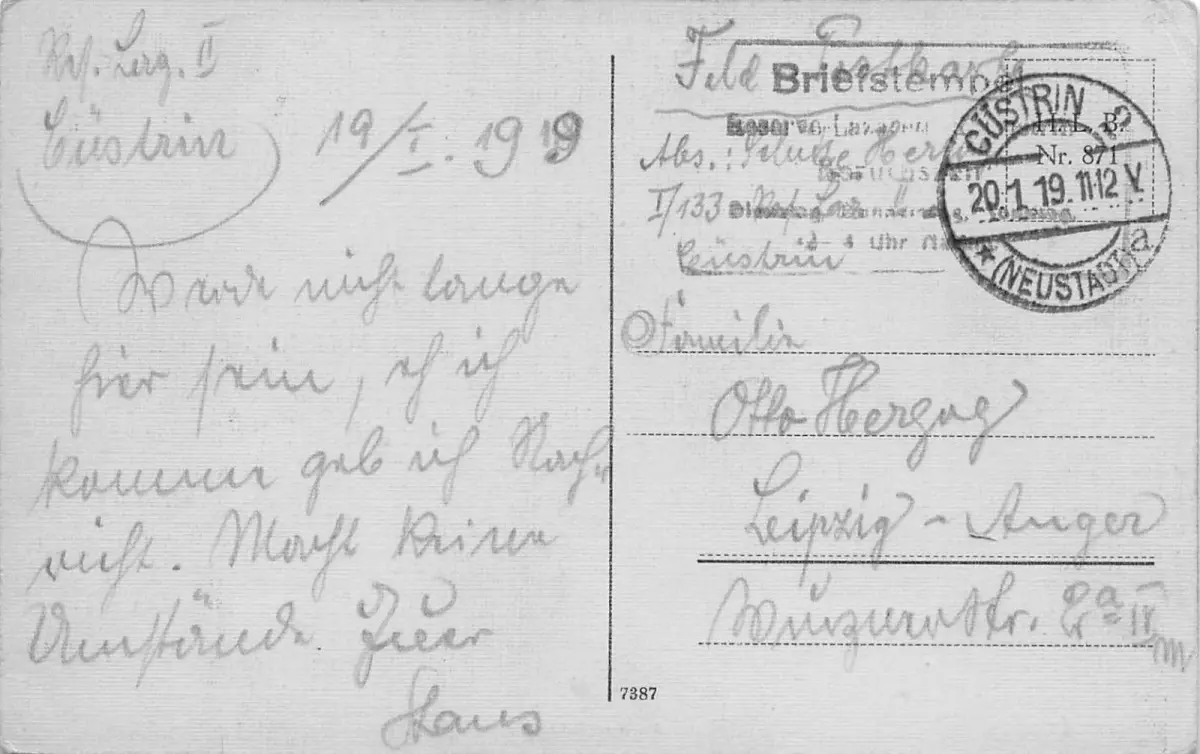 Res. Laz. II
Cüstrin 19/I. 1919
Werde nicht lange
hier sein, eh ich
komme geb ich Nach-
richt. Macht keine
Umstände. Euer
Hans
Feld Postkarte
Briefstempel
Reserve-Lazarett
Abs.: Schütze
I/133 Res. Laz. II
4 Uhr
Cüstrin
CÜSTRIN 2
20.1.19.11-12 V.
* (NEUSTADT) a
H. L. B.
Nr. 871
Familie
Otto Herzog
Leipzig - Anger
Wurznerstr. 2a IV
7387